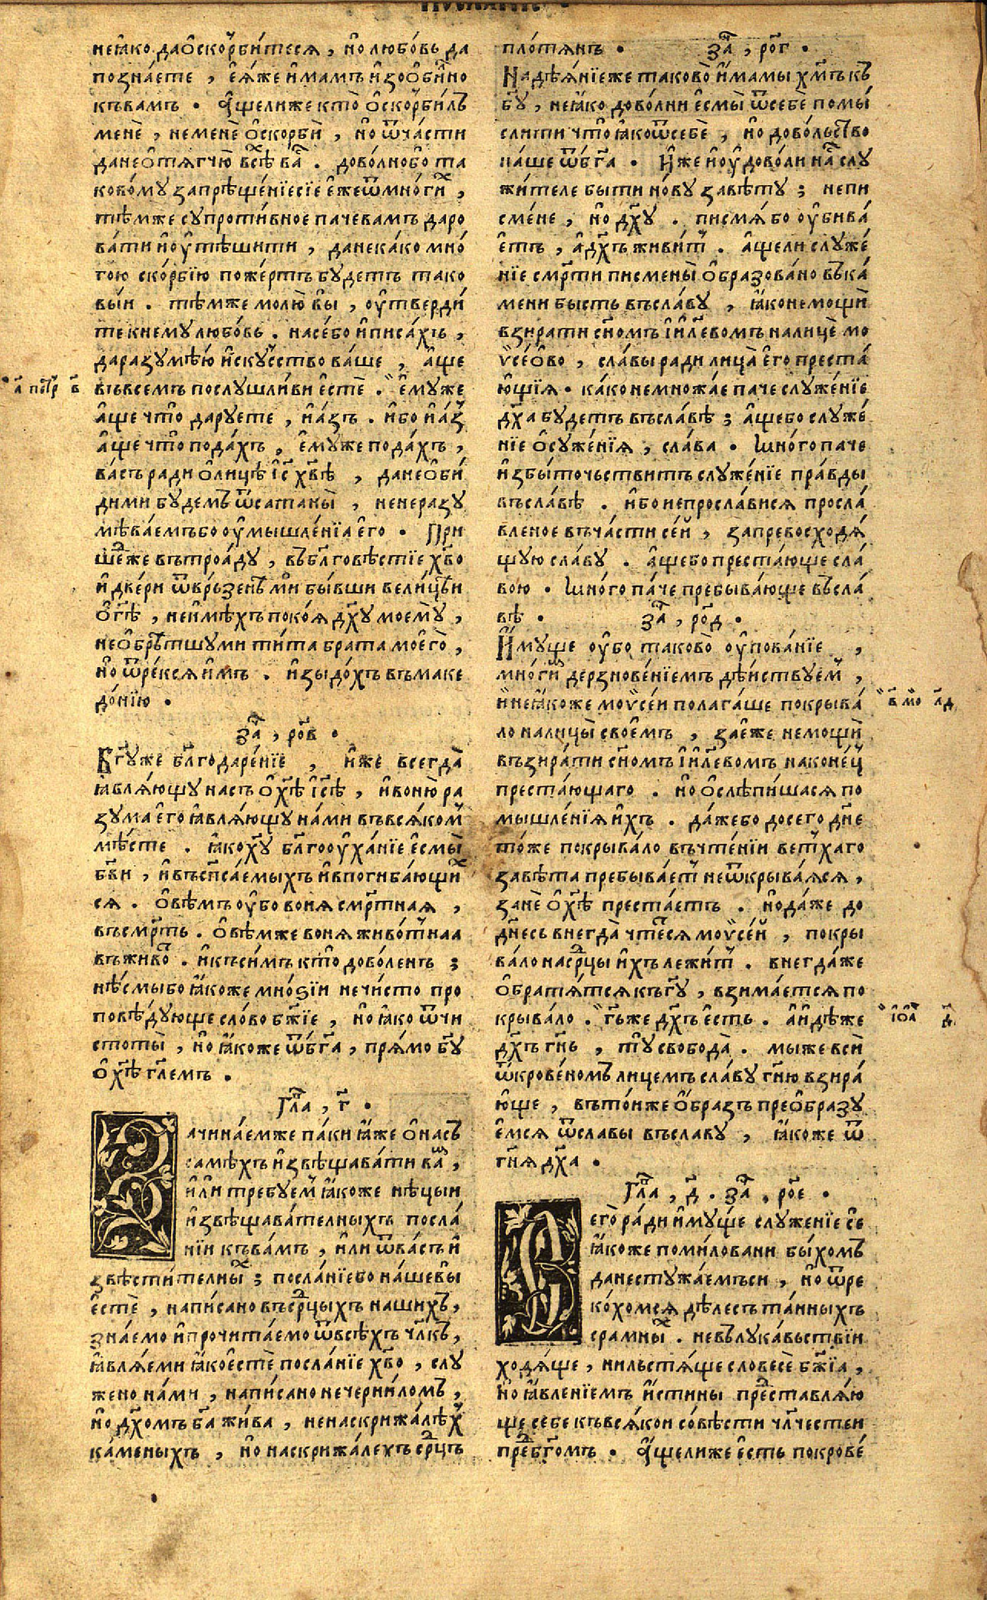 неꙗ҆ко даѻ҆скорби́теся , но҆ любо́вь да
позна́ете , е҆я́же и҆мамъ и҆зоѻби́лно
къвамъ . А҆щелиже кто̀ ѻ҆скорби́лъ
менѐ , неменѐ ѻ҆скорбѝ , но҆ ѿча́сти
данеѻ҆тягчю̀ всѣ̀ ва̑ . дово́лнобо та
ково́му запрѣще́нїесїе е҆жеѿмно́ги̑х ,
тѣ́мже супроти́вное пачевамъ даро
ва́ти и҆оу҆тѣ́шити , данека́ко мно́
гою ско́рбїю поже́ртъ бу́детъ тако
вы́и . тѣ́мже молю̀ вы̀ , оу҆тверди́
те кнему̀ любо́вь . насе́бо и҆писа́хъ ,
даразумѣ́ю и҆ску́сство ва́ше , а҆ще
въвсемъ послушли́ви е҆стѐ . е҆му́же
а҆ще что̀ да́руете , и҆а́зъ . и҆бо и҆а́з
а҆ще что̀ пода́хъ , е҆му́же пода́хъ ,
ва́съ ради ѻ҆лицѣ̀ і҆с хв҃ѣ , данеѻ҆би́
дими будемъ ѿсатаны̀ , неперазу
мѣва́емъбо оу҆мышле́нїа е҆го̀ . При
ше́же вътроа́ду , въбл҃говѣ́стїе хв҃о
и҆ две́ри ѿвръ́зенѣ мѝ бы́вши вели́цѣи
ѻ҆г҃ѣ , неи҆мѣ́хъ поко́я дх҃у моемꙋ̀ ,
неѻ҆брѣ́тшуми ти́та брата мое҆го̀ ,
но҆ ѿре́кся и҆мъ . и҆зыдо́хъ въмаке
до́нїю .
за̑ , ро҃в .
Бг҃у́же бл҃годаре́нїе , и҆же всегда̀
ꙗ҆вля́ющу на́съ ѻ҆хс҃ѣ і҆с҃ѣ , и҆воню̀ ра
зума е҆го̀ ꙗ҆вля́ющу на́ми въвся́ком
мѣ́сте . ꙗ҆кохс҃у бл҃гооу҆ха́нїе е҆смы̀
бг҃ви , и҆въспса́емыхъ и҆впогиба́ющи
ся . ѻ҆вѣ́мъ оу҆бо воня̀ сме́ртная ,
въсмр҃ть . ѻ҆вѣ́мже воня̀ живо́тнаа
въживо̑т . и҆къси́мъ кто̀ дово́ленъ ;
нѣ́смыбо ꙗ҆коже мно́ѕїи нечи́сто про
повѣ́дующе сло́во бж҃їе , но҆ ꙗ҆ко ѿчи
стоты̀ , но҆ ꙗ҆коже ѿбг҃а , пря́мо бг҃у
ѻ҆хс҃ѣ гл҃емъ .
Гл҃а , г҃ .
Зачина́емже па́ки ꙗ҆же ѻ҆на́съ
самѣ́хъ и҆звѣщава́ти ва̑м ,
и҆лѝ требуе́м ꙗ҆коже нѣ́цыи
и҆звѣщава́телныхъ посла́
нїи къва́мъ , и҆ли ѿва́съ и҆
звѣсти́телны̑х ; посла́нїебо на́шевы̀
е҆стѐ , напи́сано въср҃цыхъ на́шихъ ,
зна́емо и҆прочита́емо ѿвсѣ́хъ чл҃къ ,
ꙗ҆вля́еми ꙗ҆коестѐ посла́нїе хв҃о , слу
же́но на́ми , напи́сано нечерни́ломъ ,
но҆ дх҃омъ бг҃а жи́ва , ненаскрижа́лѣх
ка́меныхъ , но҆ наскрижа́лехъ ср҃цъ
пло́тянъ . за̑ , ро҃г .
Надѣ́янїеже таково̀ и҆мамы хм҃ъ къ
бг҃у , неꙗ҆ко дово́лни е҆смы̀ ѿсебѐ помы́
слити что̀ ꙗ҆коѿсебѐ , но҆ дово́льство
на́ше ѿбг҃а . И҆же и҆оу҆довли на̑с слу
жи́теле бы́ти но́ву завѣ́ту ; непи
сме́не , но҆ дх҃у . писмя́ бо оу҆бива́
етъ , а҆дх҃ъ живи́т . а҆щели служе́
нїе смр҃ти писмены̀ ѻ҆бразова́но въка́
мени бысть въсла́ву , ꙗ҆конемощѝ
взира́ти сн҃омъ і҆и҃левомъ налицѐ мо
ѵ̈се́ѻво , сла́вы ради лица̀ е҆го̀ преста́
ю҆щїя . ка́ко немно́жае паче служе́нїе
дх҃а бу́детъ въсла́вѣ ; а҆щебо служе́
нїе ѻ҆сужде́нїя , сла́ва . Мно́го паче
и҆збы́точьствитъ служе́нїе пра́вды
въсла́вѣ . и҆бо непросла́вися просла́
вленое въча́сти се́й , запревосходя́
щую сла́ву . а҆щебо преста́юще сла́
вою . Мно́го па́че пребыва́юще въсла́
вѣ . за̑ , ро҃д .
И҆му́ще оу҆бо таково̀ оу҆пова́нїе ,
мно́ги̑м дерзнове́нїемъ дѣ́йствуем ,
и҆неꙗ҆коже моѵ̈се́и полага́ше покрыва́
ло налицы̀ свое҆мъ , зае҆же немощѝ
възира́ти сн҃омъ і҆и҃левомъ наконе́ц
преста́ющаго . но҆ ѻ҆слѣпи́шася по
мышле́нїя и҆хъ . да́жебо досего̀ дн҃е
то́же покрыва́ло въчте́нїи ве́тхаго
завѣ́та пребыва́ет неѿкрыва́яся ,
занѐ ѻ҆хс҃ѣ преста́етъ . но҆да́же до
дн҃есь внегда̀ чте́тся моѵ̈се́й , покры
ва́ло наср҃цы и҆хъ лежи́т . внегда́же
ѻ҆братя́тся къгу҃ , взима́ется по
крыва́ло . гь҃же дх҃ъ е҆сть . а҆и҆дѣ́же
дх҃ъ гн҃ь , ту̀ свобода̀ . мы́же всѝ
ѿкрове́номъ лице́мъ сла́ву гн҃ю взира́
юще , въто́иже ѻ҆́бразъ преѻ҆бразу́
е҆мся ѿсла́вы въсла́ву , ꙗ҆коже ѿ
гн҃я дх҃а .
Гл҃а , д҃ . за̑ , ро҃е .
Сего̀ ра́ди и҆му́ще служе́нїе сѐ
ꙗ҆коже поми́ловани бы́хомъ
данестужа́емъси , но҆ ѿре
ко́хомся дѣлесъ та́йныхъ
срамны̑х . невълука́вьствїи
ходя́ще , нильстя́ще словесѐ бж҃їа ,
но҆ ꙗ҆вле́нїемъ и҆́стины представля́ю
ще себе къвся́кои со́вѣсти чл҃честѣи
пред бг҃омъ . А҆щелиже е҆сть покрове́